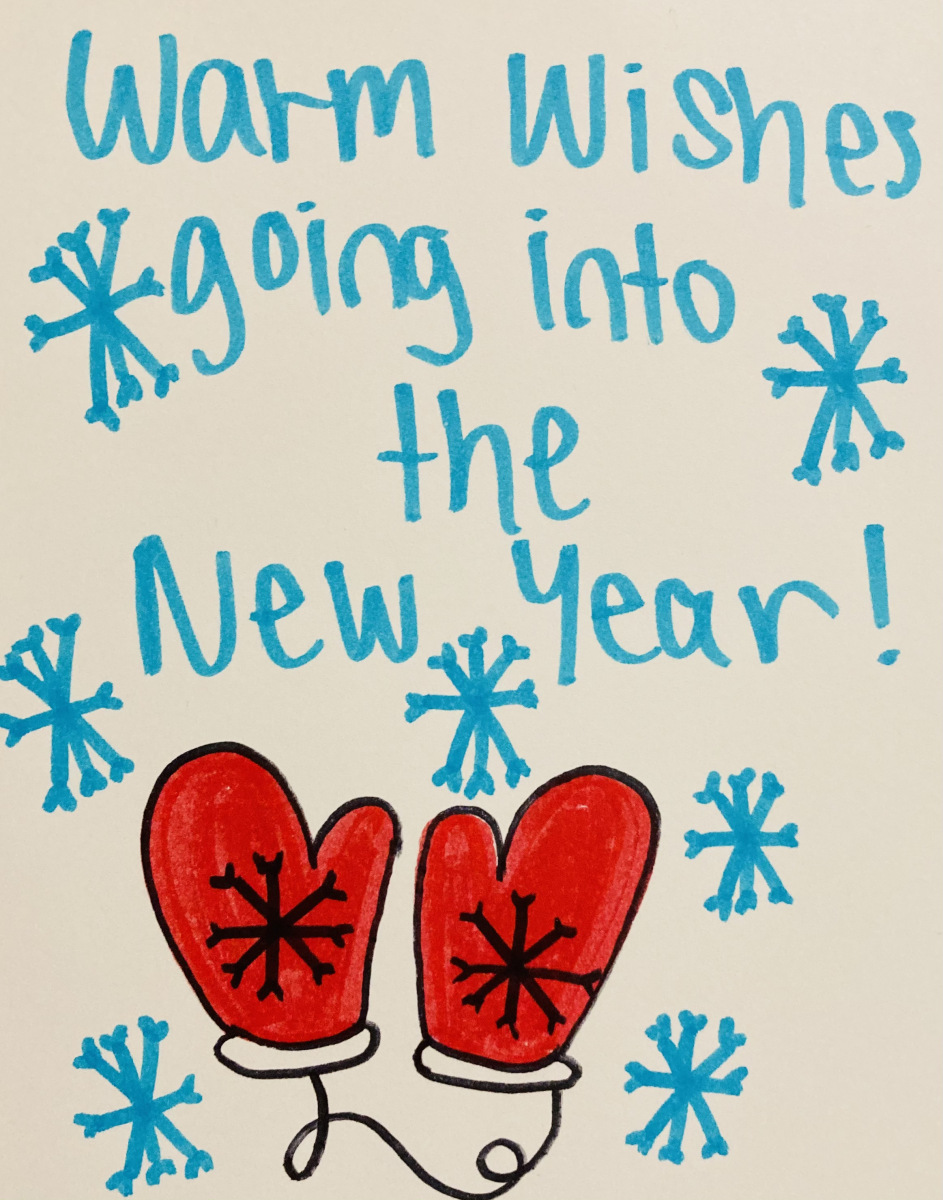 Warm Wishes
going into
the
New Year!